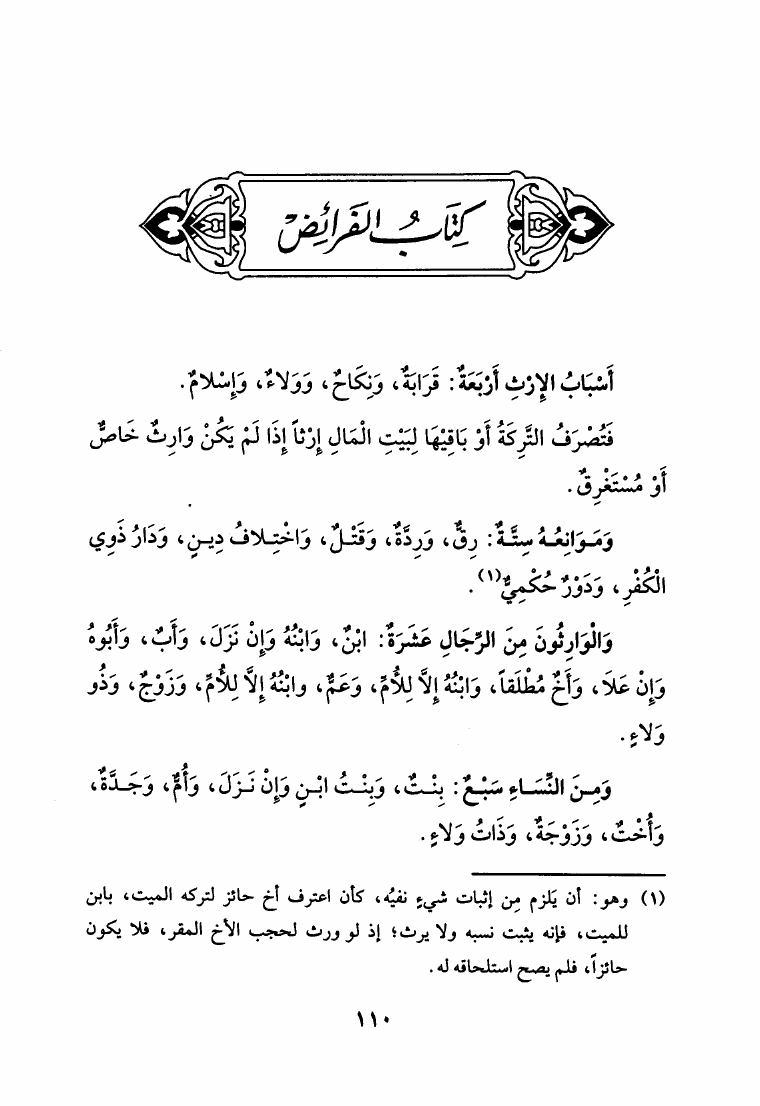 كِتَابُ الفَرَائِض
أَسْبَابُ الإِرْثِ أَرْبَعَةٌ: قَرَابَةٌ، وَنِكَاحٌ، وَوَلاءٌ، وَإِسْلامٌ.
فَتُصْرَفُ التَّرِكَةُ أَوْ بَاقِيْهَا لِبَيْتِ الْمَالِ إِرْثاً إِذَا لَمْ يَكُنْ وَارِثٌ خَاصٌّ
أَوْ مُسْتَغْرِقٌ.
وَمَوَانِعُهُ سِتَّةٌ: رِقٌّ، وَرِدَّةٌ، وَقَتْلٌ، وَاخْتِلافُ دِينٍ، وَدَارُ ذَوِي
الْكُفْرِ، وَدَوْرٌ حُكْمِيٌّ(١).
وَالْوَارِثُونَ مِنَ الرِّجَالِ عَشَرَةٌ: ابْنٌ، وَابْنُهُ وَإِنْ نَزَلَ، وَأَبٌ، وَأَبُوهُ
وَإِنْ عَلَا، وَأَخٌ مُطْلَقاً، وَابْنُهُ إِلاَّ لِلأُمِّ، وَعَمٌّ، وابْنُهُ إِلاَّ لِلأُمِّ، وَزَوْجٌ، وَذُو
وَلاءٍ.
وَمِنَ النِّسَاءِ سَبْعٌ: بِنْتٌ، وَبِنْتُ ابْنٍ وَإِنْ نَزَلَ، وَأُمٌّ، وَجَدَّةٌ،
وَأُخْتٌ، وَزَوْجَةٌ، وَذَاتُ وَلاءٍ.
(١) وهو: أن يَلزم مِن إثبات شيءٍ نفيُه، كأن اعترف أخ حائز لتركه الميت، بابن
للميت، فإنه يثبت نسبه ولا يرث؛ إذ لو ورث لحجب الأخ المقر، فلا يكون
حائزاً، فلم يصح استلحاقه له.
١١٠